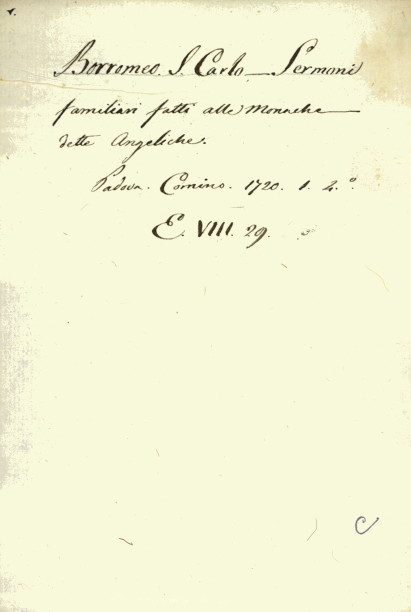 Borromeo. S. Carlo — Sermoni
familiari fatti alle Monache
dette Angeliche.
Padova. Comino. 1720. 1. 4.º
E. VIII. 29.
C